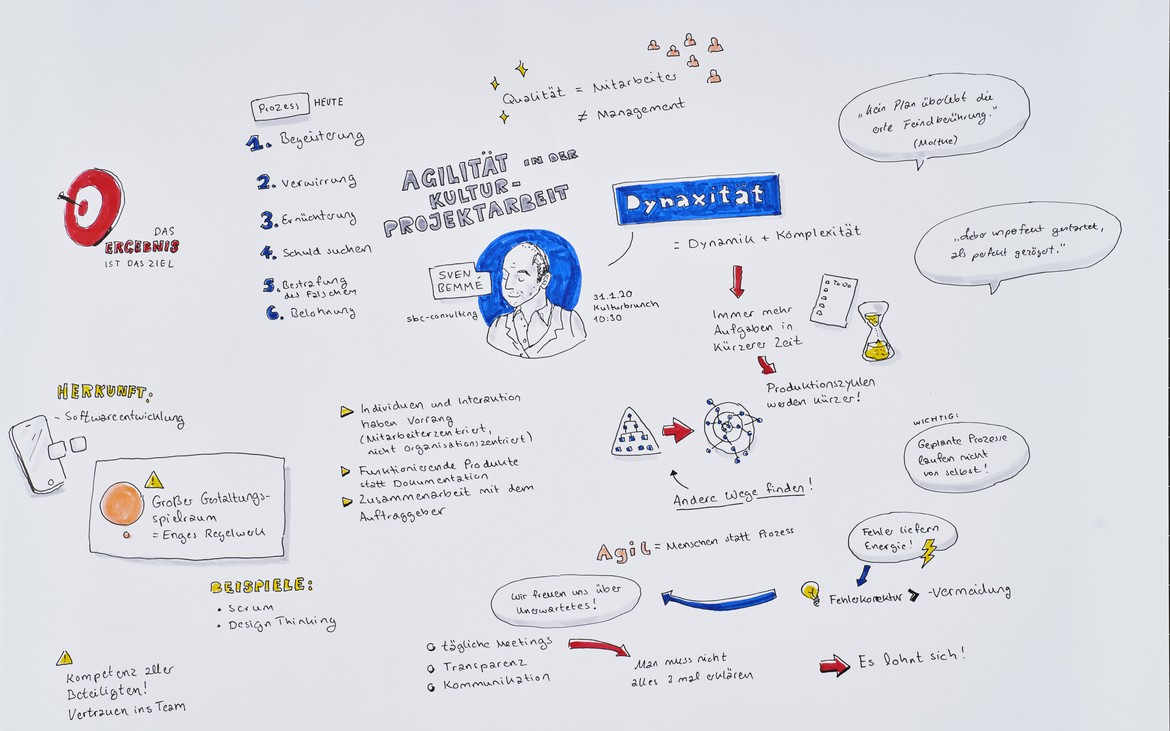 Qualität = Mitarbeiter
≠ Management
Prozess HEUTE
1. Begeisterung
2. Verwirrung
3. Ernüchterung
4. Schuld suchen
5. Bestrafung
des Falschen
6. Belohnung
DAS
ERGEBNIS
IST DAS ZIEL
AGILITÄT IN DER
KULTUR-
PROJEKTARBEIT
SVEN
BEMMÉ
sbc-consulting
31.1.20
Kulturbrunch
10:30
Dynaxität
= Dynamik + Komplexität
Immer mehr
Aufgaben in
kürzerer Zeit
To Do
Produktionszyklen
werden kürzer!
Andere Wege finden!
„Kein Plan überlebt die
erste Feindberührung."
(Moltke)
„Lieber unperfekt gestartet,
als perfekt gezögert."
WICHTIG:
Geplante Prozesse
laufen nicht
von selbst!
HERKUNFT:
- Softwareentwicklung
Großer Gestaltungs-
spielraum
= Enges Regelwerk
BEISPIELE:
• Scrum
• Design Thinking
Kompetenz aller
Beteiligten!
Vertrauen ins Team
Individuen und Interaktion
haben Vorrang
(Mitarbeiterzentriert,
nicht Organisationszentriert)
Funktionierende Produkte
statt Dokumentation
Zusammenarbeit mit dem
Auftraggeber
Agil = Menschen statt Prozess
Fehler liefern
Energie!
Fehlerkorrektur > -Vermeidung
Wir freuen uns über
Unerwartetes!
tägliche Meetings
Transparenz
Kommunikation
Man muss nicht
alles 3 mal erklären
Es lohnt sich!